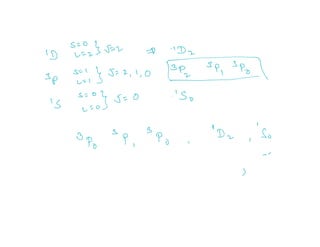 ¹D S=0 } L=2 } J=2 ⇒ ¹D₂
³P S=1 } L=1 } J=2,1,0 ³P₂ ³P₁ ³P₀
¹S S=0 } L=0 } J=0 ¹S₀
³P₀ ³P₁ ³P₀ , ¹D₂ , ¹S₀